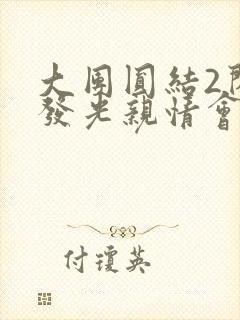 大團圓結2
發光親情會
付瓊英